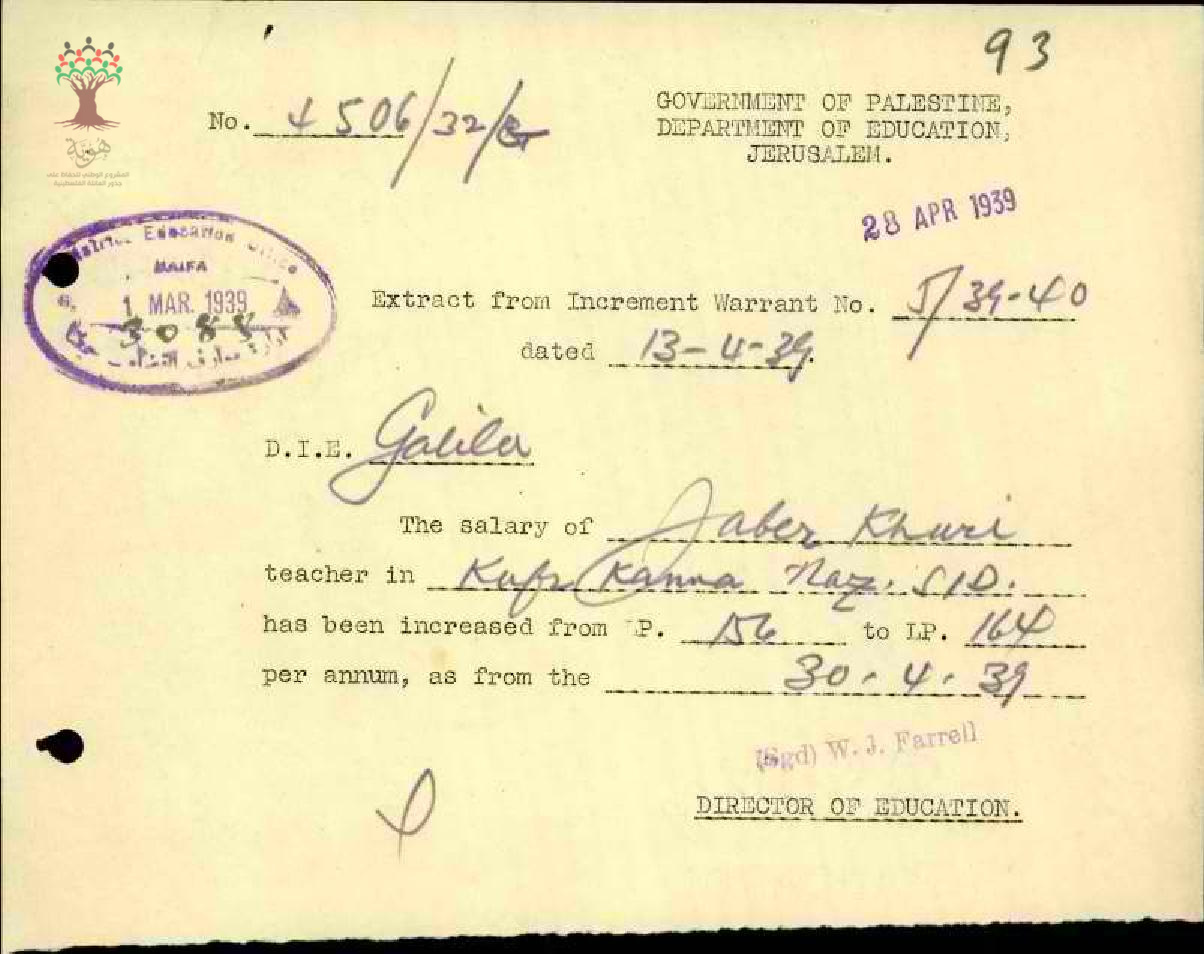 93
هوية
المشروع الوطني للحفاظ على
جذور العائلة الفلسطينية
No. 4506/32/
GOVERNMENT OF PALESTINE,
DEPARTMENT OF EDUCATION,
JERUSALEM.
28 APR 1939
District Education Office
HAIFA
1 MAR. 1939
3088
Extract from Increment Warrant No. 5/39-40
dated 13-4-39.
D.I.E. Galilee
The salary of Jaber Khuri
teacher in Kufr Kanna Naz. S/D.
has been increased from LP. 156 to LP. 164
per annum, as from the 30.4.39
(Sgd) W. J. Farrell
DIRECTOR OF EDUCATION.